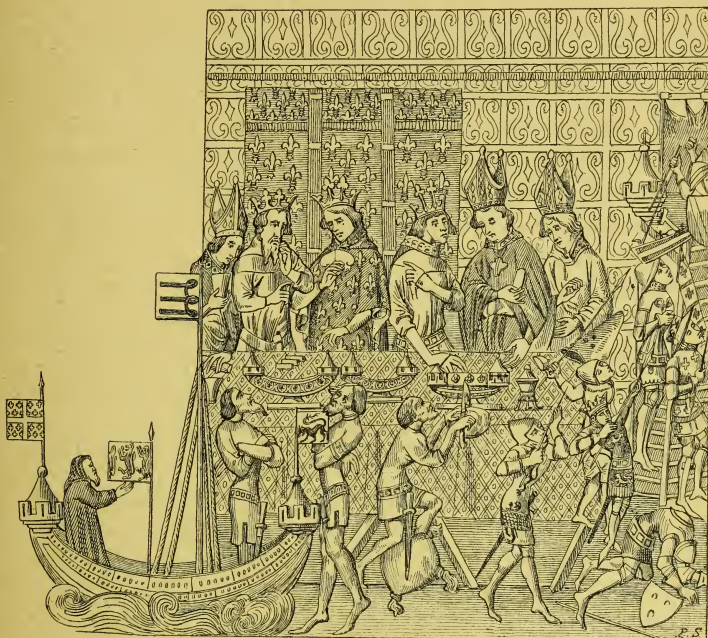 P. S.